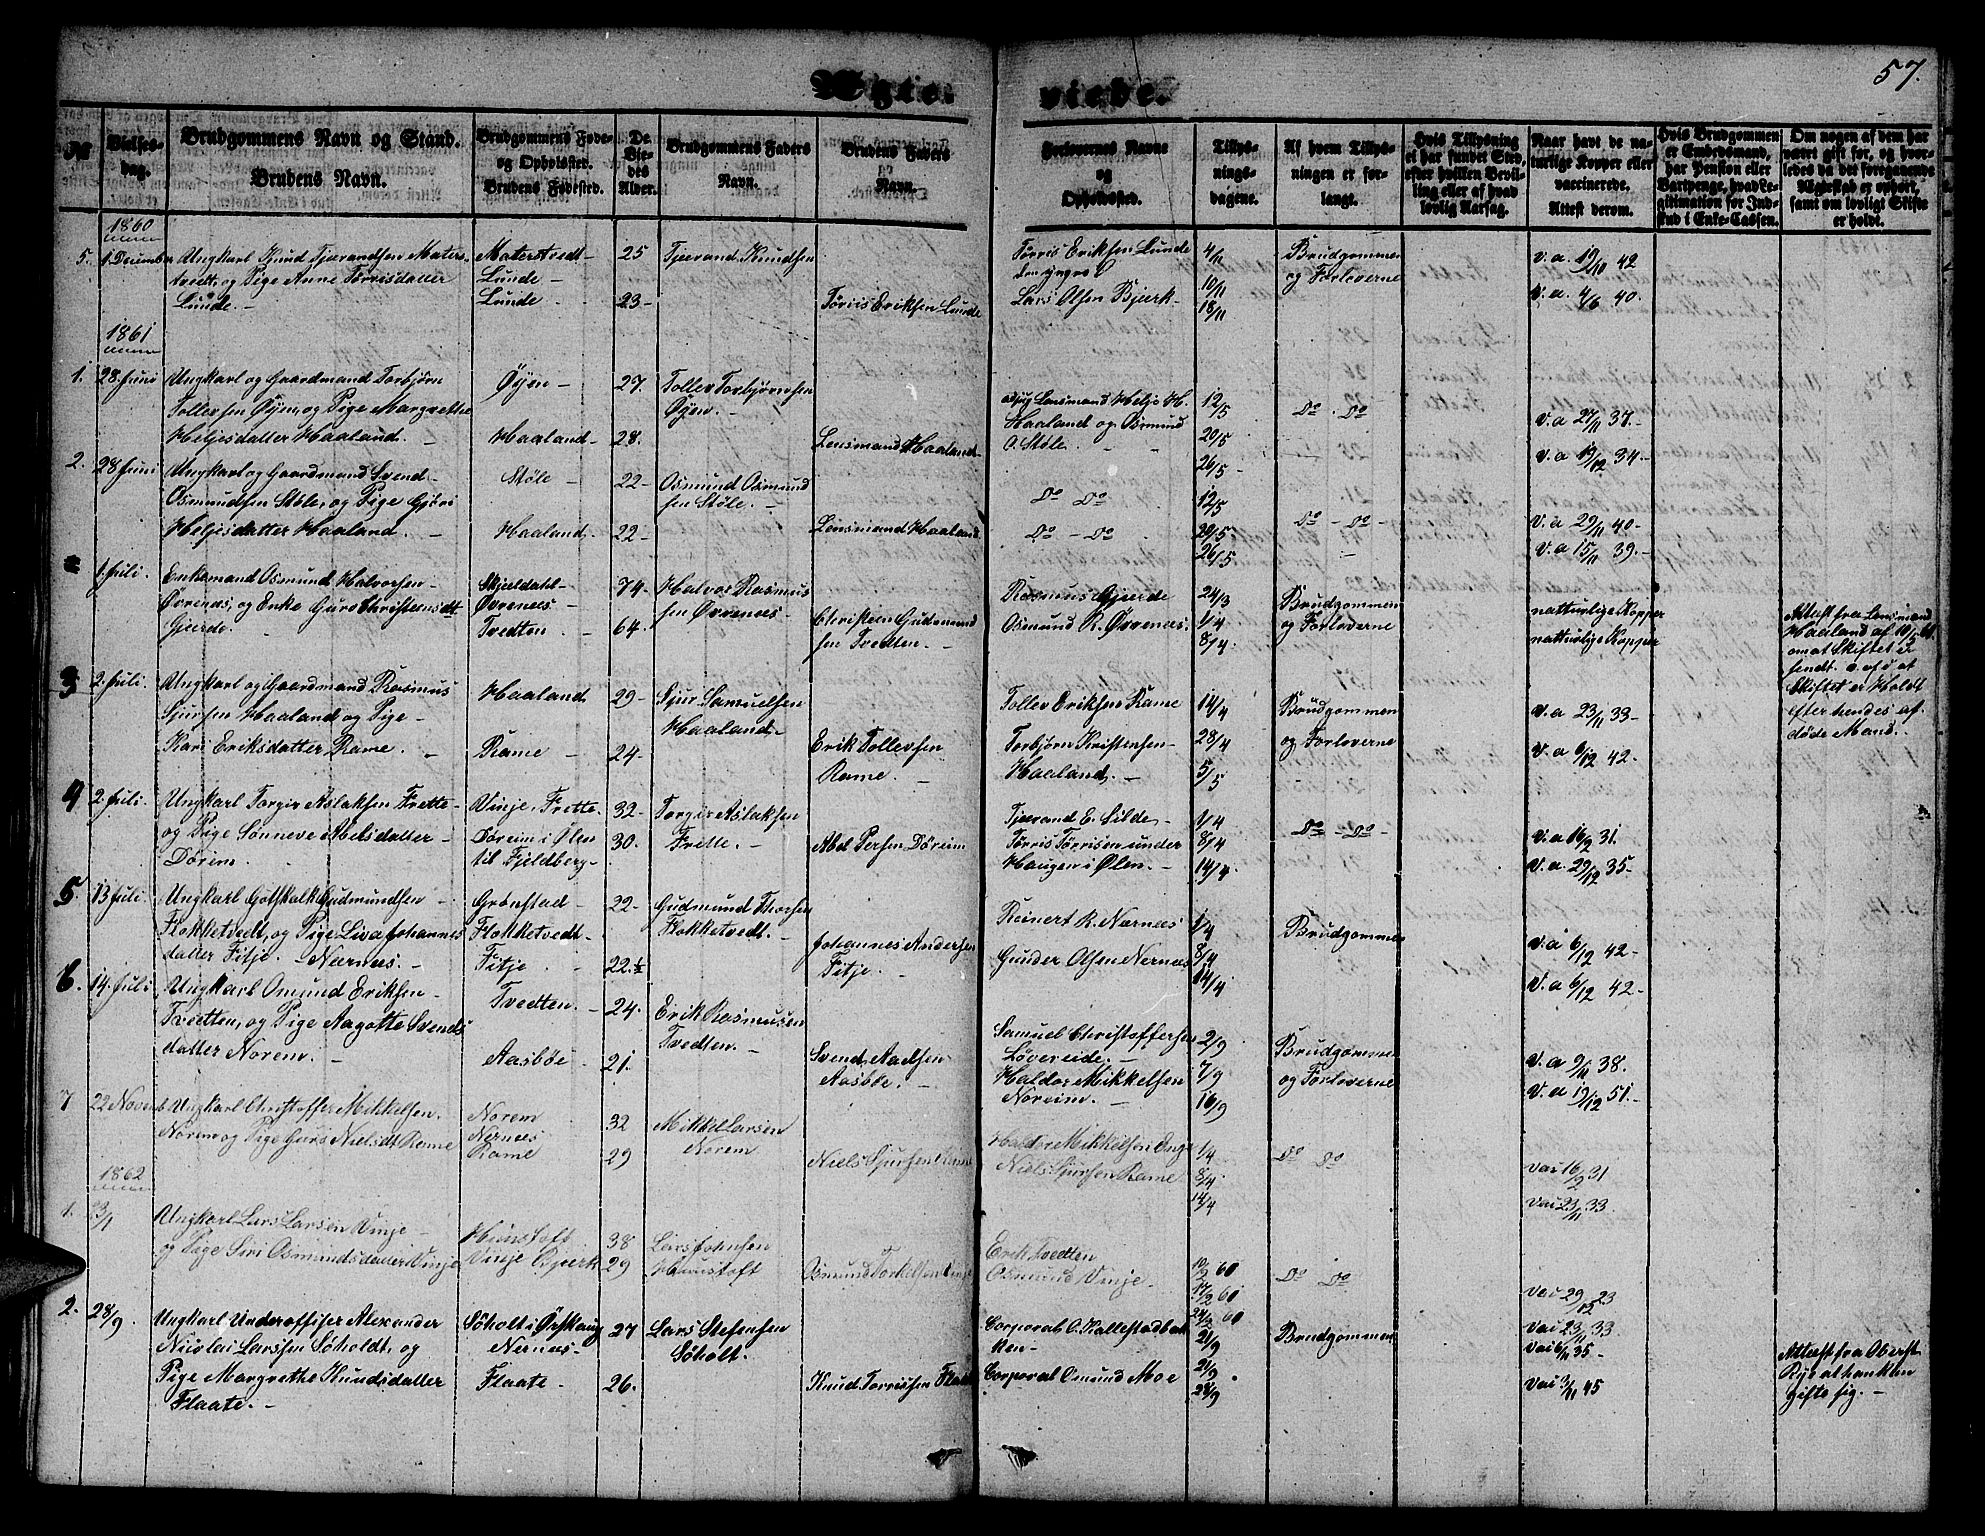 57.
Ægte- viede.
№
Vielses-dag.
Brudgommens Navn og Stand.
Brudens Navn.
Brudgommens Føde- og Opholdssted.
Brudens Fødested.
De Viedes Alder.
Brudgommens Faders Navn.
Brudens Faders Navn.
Forlovernes Navne og Opholdssted.
Tillysningsdagene.
Af hvem Tillysningen er forlangt.
Hvis Tillysning ei har fundet Sted, efter hvilken Bevilling eller af hvad lovlig Aarsag.
Naar havt de naturlige Kopper eller vaccinerede. Attest derom.
Hvis Brudgommen er Embedsmand, har Pension eller Vartpenge, hvad Legitimation for Indskud i Enke-Cassen.
Om nogen af dem har været gift før, og hvorledes da det foregaaende Ægteskab er ophørt, samt om lovligt Skifte er holdt.
1860
5. 1 December Ungkarl Knud Tjerandsen Materstvedt Materstvedt- 25 Tjerand Knudsen Tørris Eriksen Lunde 4/11 Brudgommen v. a. 19/10 42
tvedt, og Pige Anne Tørrisdatter Lunde- den yngre 10/11 og Forloverne
Lunde.- Lunde- 23- Tørris Eriksen Lunde Lars Olsen Bjerk- 18/11 v. a. 4/6 40.
1861
1. 28 Juni Ungkarl og Gaardmand Torbjørn Øyen- 27. Tollev Torbjørnsen
Tollevsen Øyen, og Pige Margrethe Øyen.- Lensmand Helje H. 12/5 Do Do v. a 27/11 37.-
Heljesdatter Haaland.- Haaland- 28. Lensmand Haaland- Haaland og Osmund 20/5
O. Støle. 26/5- v. a 19/12 34-
2. 28 Juni Ungkarl og Gaardmand Svend- Støle- 22- Osmund Osmund
Osmundsen Støle, og Pige Gjøri sen Støle.- Do Do 12/5
Heljesdatter Haaland.- Haaland. 22- Lensmand Haaland. Do - Do 20/5 Do - Do- v. a 29/11 40-
26/5 v. a 15/11 39.-
1. Juli. Enkemand Osmund Halvorsen- Skjeldahl- 74- Halvor Rasmus Rasmus Gjerde 24/3 Brudgommen naturlige Kopper
Øvrenæs, og Enke Guro Christensdt Øvrenæs- sen Øvrenæs- Christen Gudmund Osmund R. Øvrenæs. 1/4 og Forloverne naturlige Kopper
Gjerde.- Tvedten.- 64. sen Tvedten.- 8/4
Attest fra Lensmand
Haaland af 10/
om at Skiftet
Skiftet er Holdt
Efter hendes af-
døde Mand.-
3 2. Juli. Ungkarl og Gaardmand Rasmus Haaland 29- Sjur Samuelsen Tollev Eriksen Rame 14/4 Brudgommen v. a 23/11 33-
Sjursen Haaland og Pige- Haaland- Torbjørn Kristensen- 28/4 og Forloverne
Kari Eriksdatter Rame.- Rame- 24- Erik Tollevsen Haaland.- 5/5 v. a 6/12 42.-
Rame.-
4 2. Juli. Ungkarl Torgir Aslaksen Frette- Vinje, Frette. 32- Torgir Aslaksen Tjerand E. Silde- 1/4 Do - Do- v. a 16/2 31.
og Pige Sønneve Abelsdatter- Døreim i Ølen 30. Frette.- Abel Persen Døreim Tørris Tørrisen under 8/4
Dørim. til Fjeldberg- Haugen i Ølen.- 14/4 v. a. 29/12 35-
5. 13 Juli. Ungkarl Gotskalk Gudmundsen- Grønstad- 22- Gudmund Thorsen Reinert R. Nærnæs 1/4 Brudgommen v. a 6/12 42-
Flokketvedt, og Pige Liva Johannes Flokketvedt- Flokketvedt.- Johannes Andersen Gunder Olsen Nernæs 8/4
datter Fitje. Nærnæs.- Fitje- 22.½ Fitje.- 14/4 v. a 6/12 42-
6. 14. Juli Ungkarl Omund Eriksen- Tvedten- 24- Erik Rasmusen Samuel Christoffersen 2/9 Brudgommen v. a 9/11 38.
Tvedten, og Pige Aagotte Svends Tvedten.- Løvereide.- og Forloverne
datter Norem.- Aasbøe- 21. Svend Aadsen Haldor Mikkelsen 7/9 v. a 19/12 51.-
Aasbøe.- Noreim.- 16/9
7 22 Novemb Ungkarl Christoffer Mikkelsen. Norem 32 Mikkel Larsen Haldor Mikkelsen Enge 1/4 Do Do vai 16/2 31
Norem og Pige Guro Nielsdt Rame Nernæs Norem Niels Sjursen Rame Niels Sjursen Rame 8/4
Rame 29 14/4 vai 23/11 33.
1862
1. 23/1 Ungkarl Lars Larsen Vinje- Hunstoft 38 Lars Johnsen Erik Tvedten 10/2 60 Do Do
og Pige Siri Osmundsdatter Vinje Vinje Bjerk 29 Hunstoft Osmund Torkelsen Vinje Osmund Vinje. 17/2 60 vai 29/12 23
24/2 60 vai 23/11 33
2. 28/9 Ungkarl Underoffiser Alexander Søholt i Ørskoug 27 Lars Stefensen Corporal O. Kallestadbak 21/9 Brudgommen vai 6/11 35-
Nicolai Larssen Søholdt, og Nernæs- Søholt. ken-
Pige Margrethe Knudsdatter Flaate- 26. Knud Torrissen Corporal Osmund Moe 21/9 vai 3/11 45
Flaate.- 28/9
Attest fra Oberst
Rye at han kan
gifte sig.-